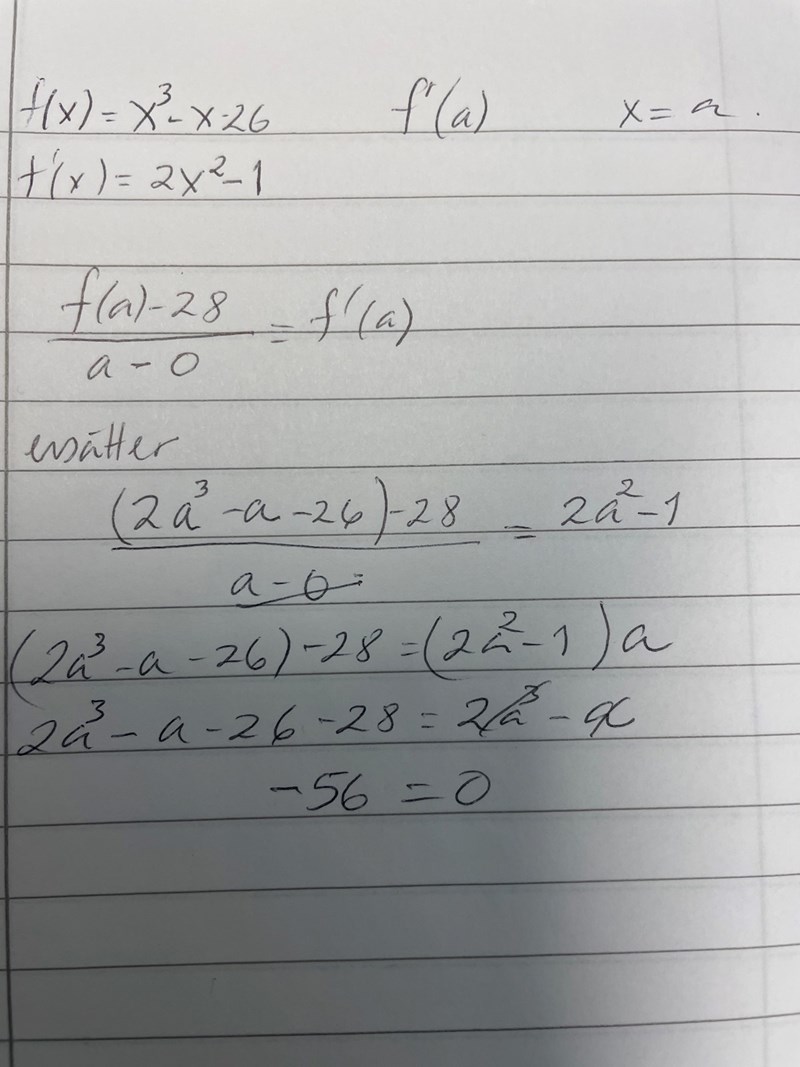 f(x) = x³ - x - 26 f'(a) x = a .
f'(x) = 2x² - 1
f(a) - 28
a - 0
= f'(a)
ersätter
(2a³ - a - 26) - 28
a - 0
= 2a² - 1
(2a³ - a - 26) - 28 = (2a² - 1) a
2a³ - a - 26 - 28 = 2a³ - a
-56 = 0